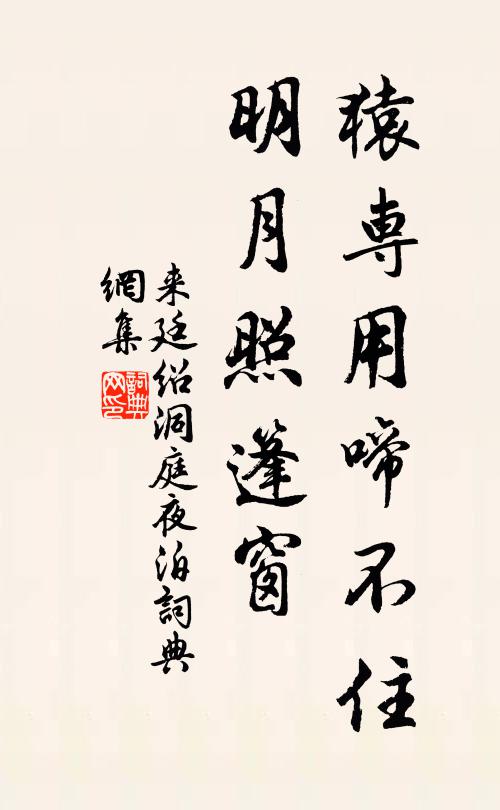 猿専用啼不住
明月照篷窗
来廷绍洞庭夜泊詞典
網集
詞典
网印